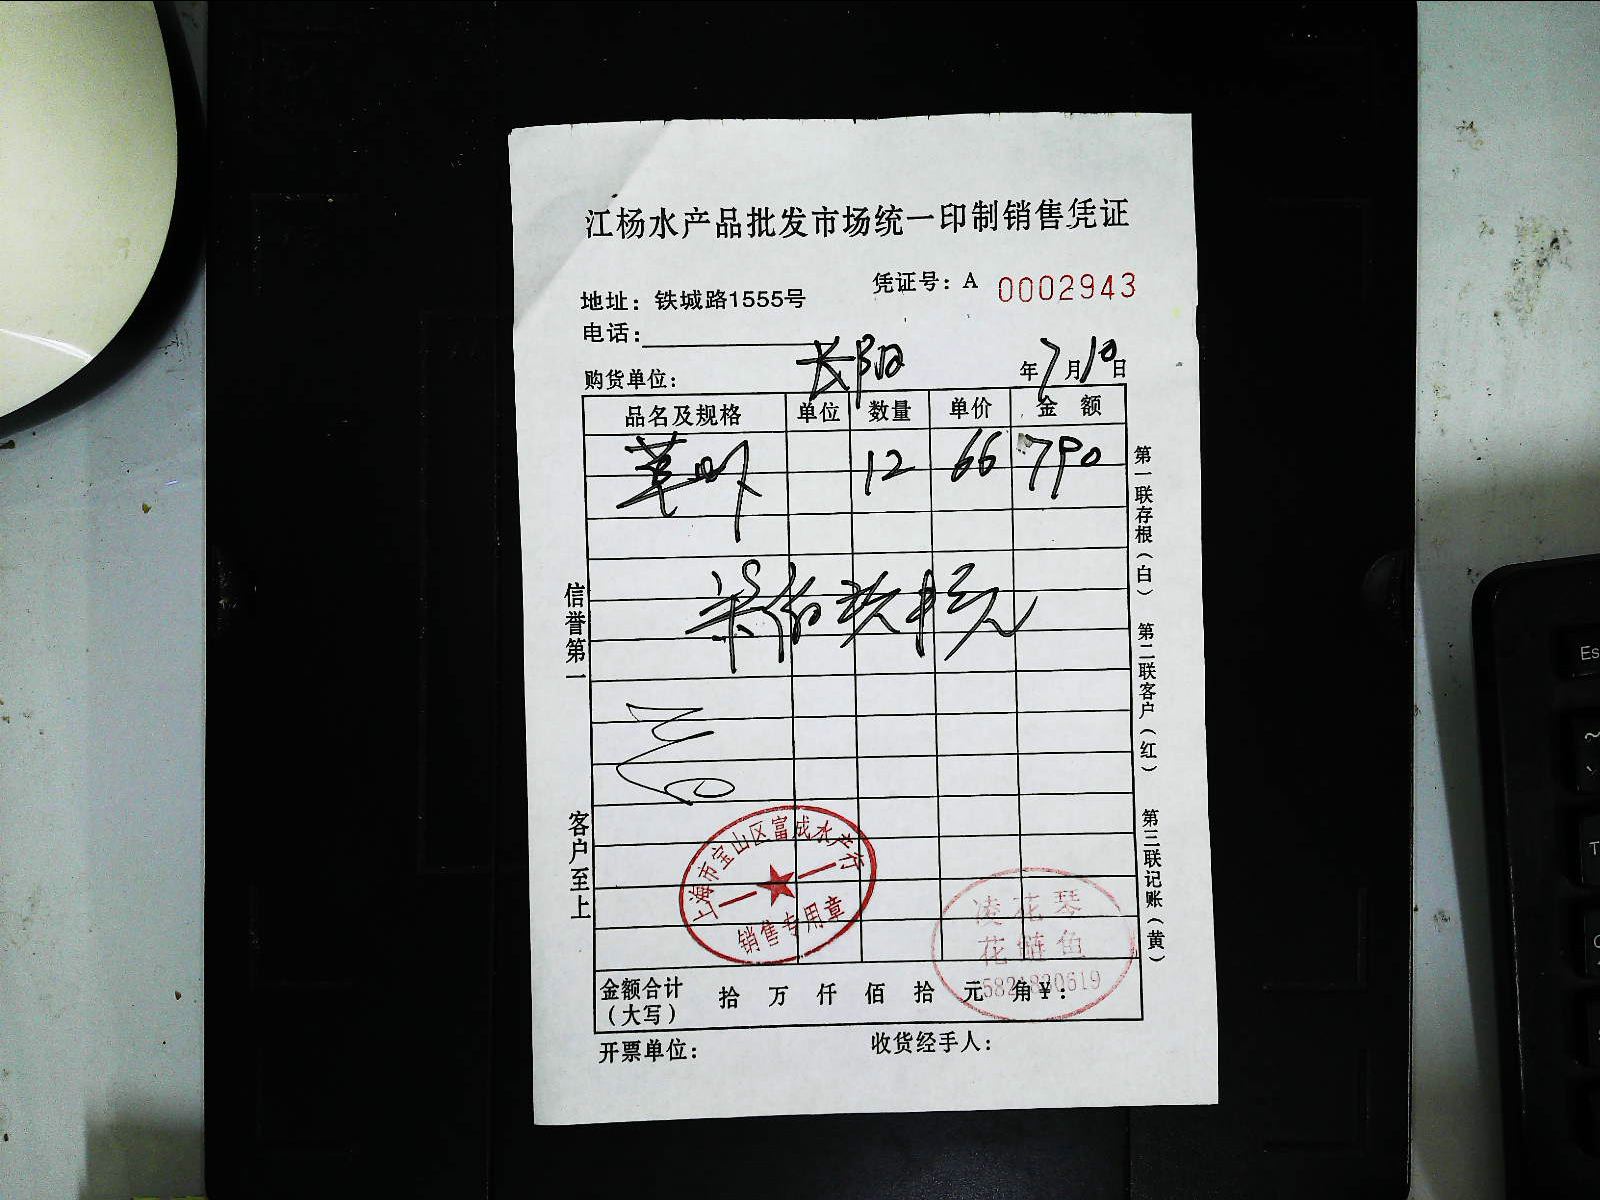 江杨水产品批发市场统一印制销售凭证
凭证号：A 0002943
地址：铁城路1555号
电话：
购货单位： 长阳 年7月10日
品名及规格 单位 数量 单价 金额
草 12 66 790
柒佰玖拾元
信誉第一
客户至上
第一联存根（白）
第二联客户（红）
第三联记账（黄）
上海市宝山区富成水产行
销售专用章
凌花琴
花鲢鱼
金额合计（大写） 拾 万 仟 佰 拾 元 角¥：
开票单位： 收货经手人：
Es